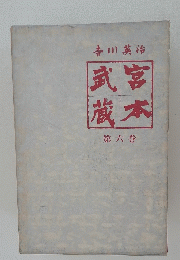 吉川英治
宮本
武蔵
第六巻